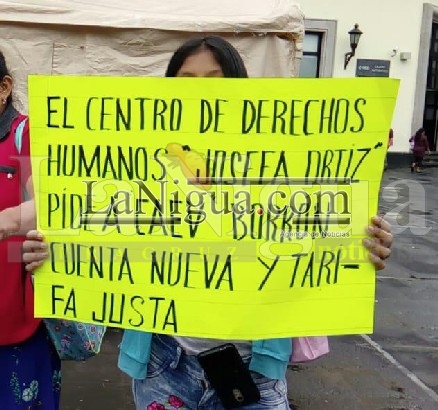 EL CENTRO DE DERECHOS
HUMANOS "JOSEFA ORTIZ"
PIDE A CAEV BORRÓN
LaNigua.com
Agencia de Noticias
CUENTA NUEVA Y TARI-
FA JUSTA